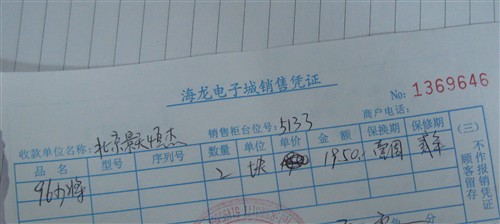 海龙电子城销售凭证
No: 1369646
收款单位名称: 北京 恒杰 销售柜台位号: 5133 商户电话:
品名 型号 序列号 数量 单位 单价 金额 保换期 保修期
2 块 1950
(三)不作报销凭证 顾客留存